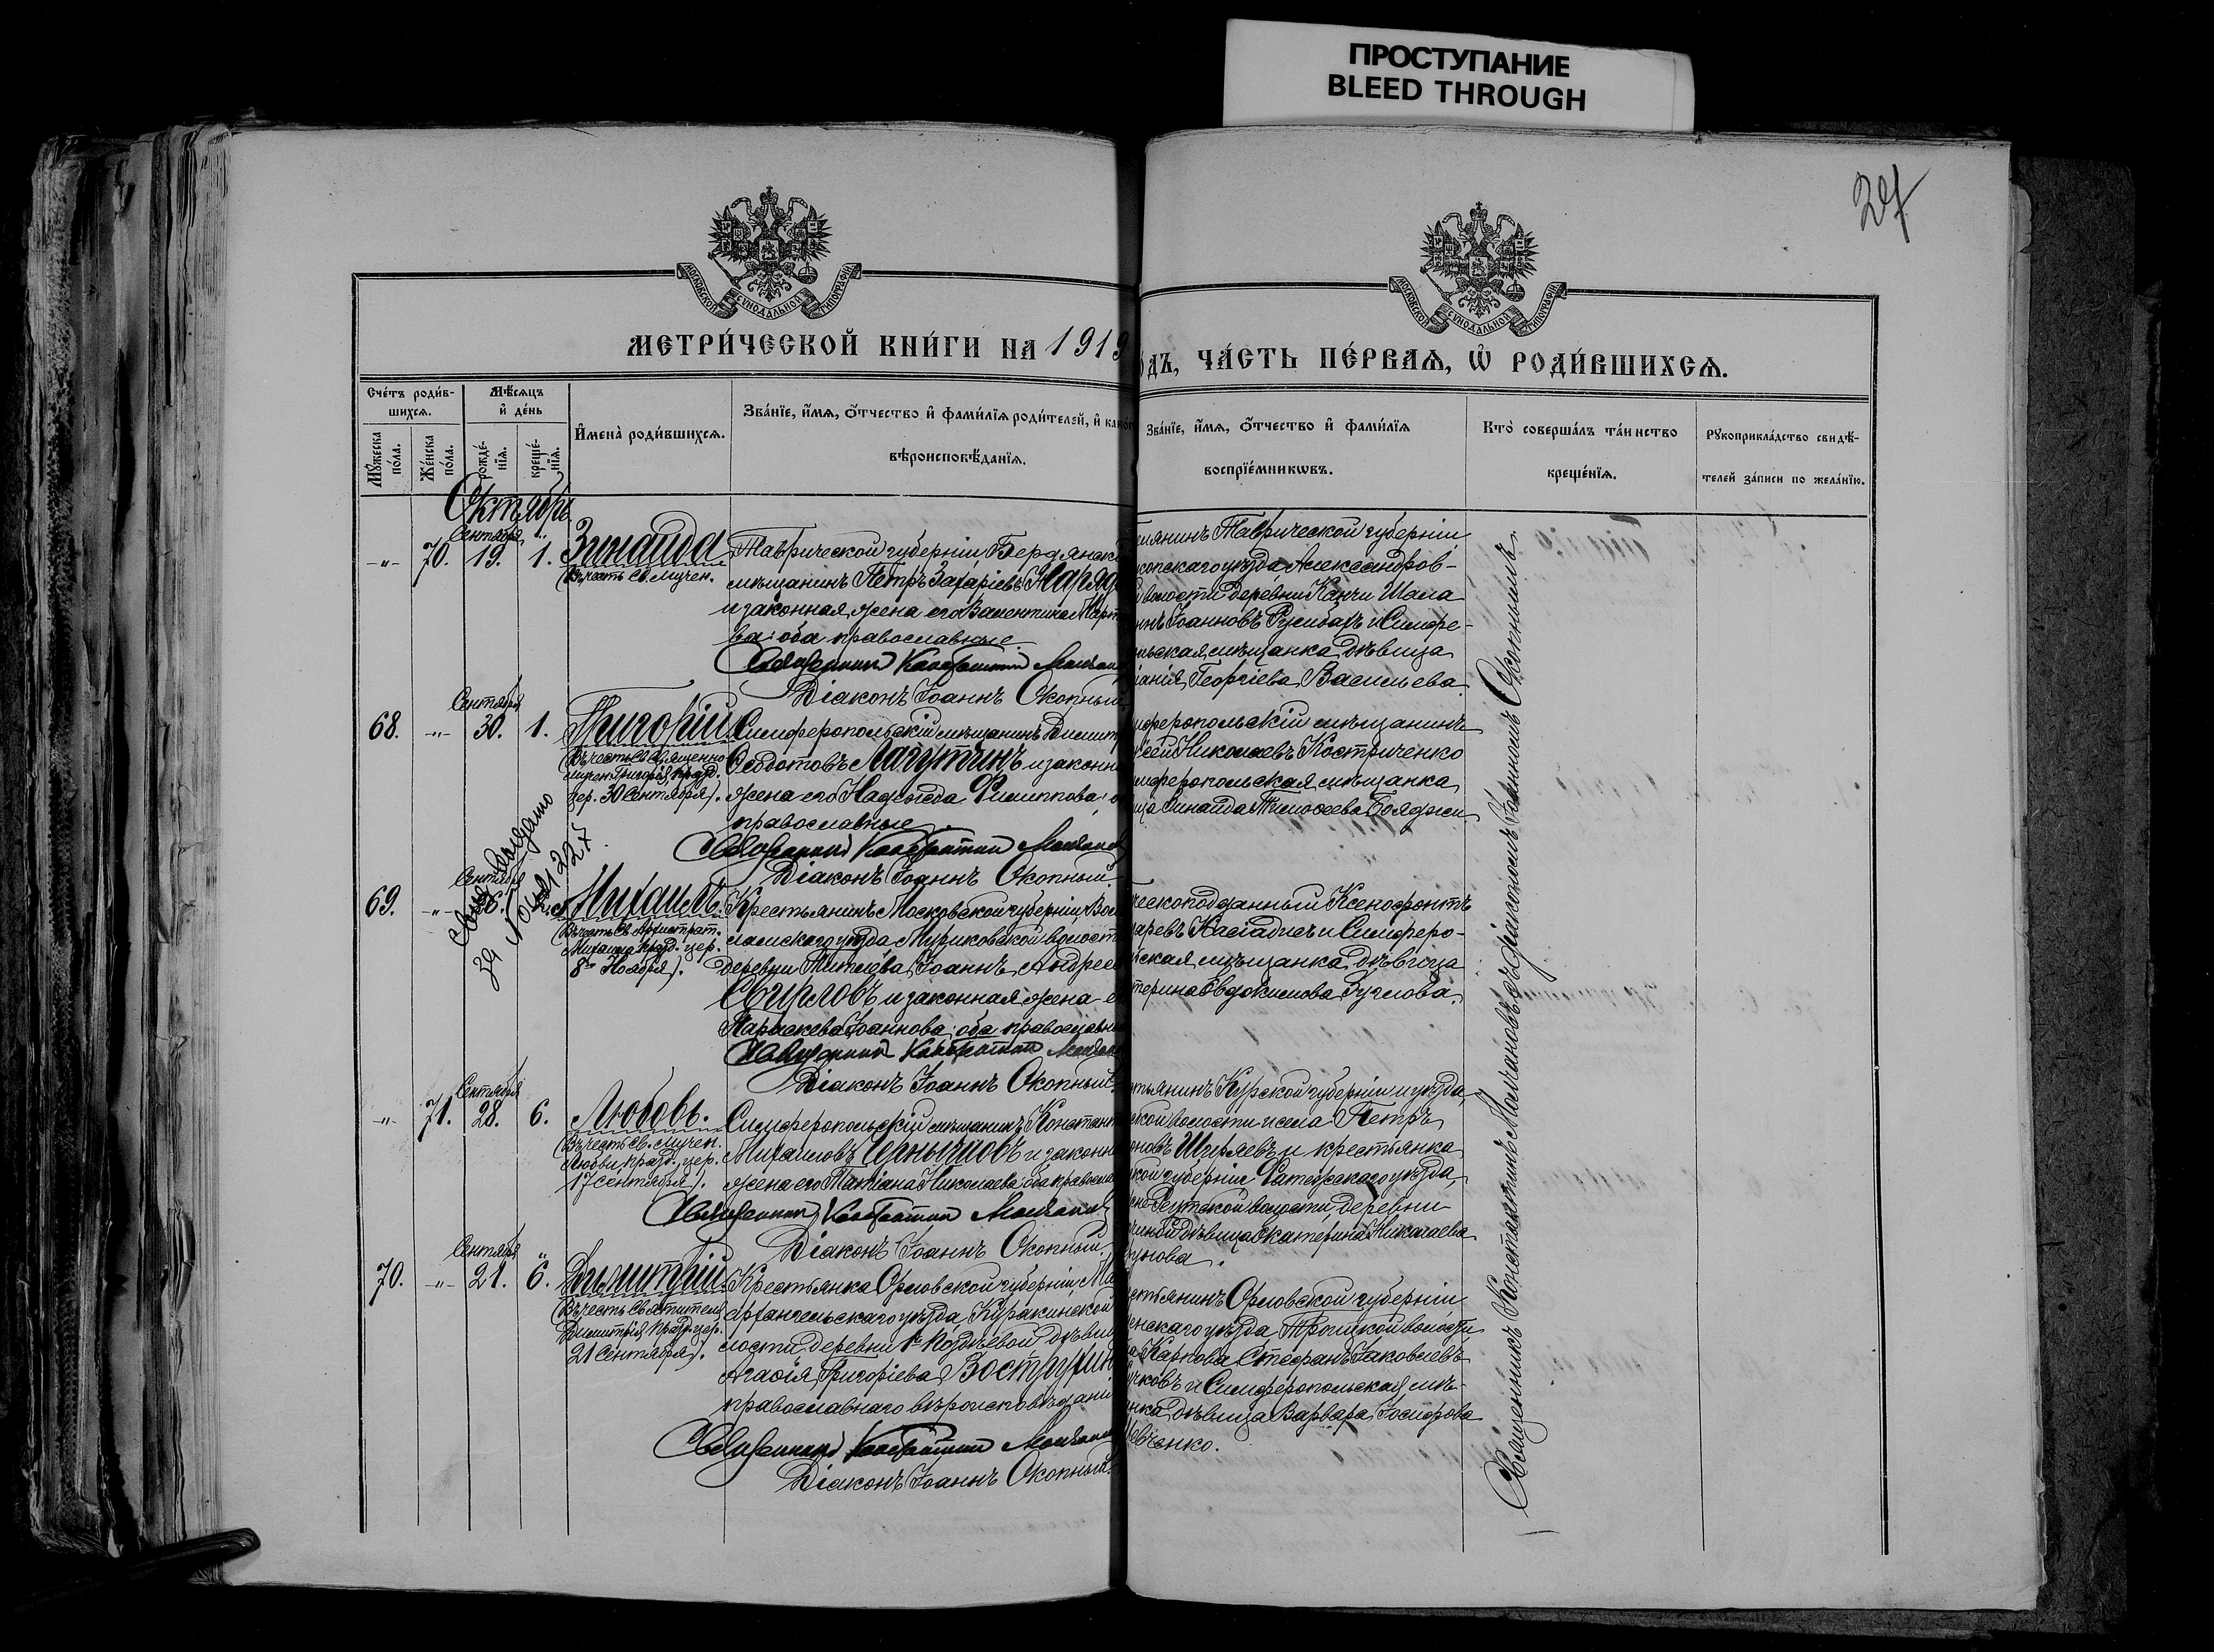 ПРОСТУПАНИЕ
BLEED THROUGH
27
МОСКОВСКОЙ СУНОДАЛЬНОЙ ТИПОГРАФІИ
МОСКОВСКОЙ СУНОДАЛЬНОЙ ТИПОГРАФІИ
МЕТРИ́ЧЕСКОЙ КНИ́ГИ НА 1919
ДЪ, ЧА́СТЬ ПЕ́РВАѦ, Ѡ҆ РОДИ́ВШИХСѦ.
Сче́тъ роди́в-
шихсѧ.
Мꙋ́жеска по́ла.
Же́нска по́ла.
Мѣ́сѧцъ
и҆ де́нь
рожде́-
нїѧ.
креще́-
нїѧ.
И҆мена̀ роди́вшихсѧ.
Зва́нїе, и҆́мѧ, ѻ҆́тчество и҆ фами́лїѧ роди́телей, и҆ како́г
вѣроисповѣ́данїѧ.
Зва́нїе, и҆́мѧ, ѻ҆́тчество и҆ фами́лїѧ
воспрїе́мникѡвъ.
Кто̀ соверша́лъ та́инство
креще́нїѧ.
Рꙋкоприкла́дство свидѣ́-
телей за́писи по жела́нїю.
Октябрь
Сентября
-"- 70. 19. 1. Зинаида
(Въ честь св. мучен.
Таврической губерніи Бердянск
мѣщанинъ Петръ Захаріевъ
и законная жена его Валентина Март
ва; оба православные.
Священникъ Константинъ Молчанов
Діаконъ Іоаннъ Окопный
янинъ Таврической губерніи,
копскаго уѣзда Александров-
волости деревни Канчи Шала
Іоанновъ и Симфе-
льская мѣщанка дѣвица
Георгіева Васильева.
Сентября
68. -"- 30. 1. Григорій
(Въ честь св. Священно
мучен. Григорія, празд.
цер. 30 Сентября).
Симферопольскій мѣщанинъ Димитр
Ѳеодотовъ Лагутинъ и законн
жена его Надежда Филиппова; о
православные.
Священникъ Константинъ Молчанов
Діаконъ Іоаннъ Окопный.
мферопольскій мѣщанинъ
Николаевъ Костриченко
мферопольская мѣщанка
ца Зинаида Тимоѳеева
Свид. выдано
Сентября
69. -"- Михаилъ
(Въ честь св. Архистрат.
Михаила празд. цер.
8го Ноября).
Крестьянинъ Московской губерніи, Вол
ламскаго уѣзда Муриковской волост
деревни Іоаннъ Андрее
и законная жена е
Параскева Іоаннова; оба православн
Священникъ Константинъ Молчанов
Діаконъ Іоаннъ Окопный.
ческоподданный Ксенофонтъ
и Симферо-
ская мѣщанка дѣвица
терина Евдокимова
Сентября
-"- 71. 28. 6. Любовь.
(Въ честь св. мучен.
Любви, празд. цер.
17 сентября).
Симферопольскій мѣщанинъ Констант
Михаиловъ Чернышовъ и законн
жена его Татіана Николаева; оба правосла
Священникъ Константинъ Молчанов
Діаконъ Іоаннъ Окопный.
тьянинъ Курской губерніи и уѣзда,
ской волости и села Петръ
оновъ Ширяевъ и крестьянка
кой губерніи Фатежскаго уѣзда,
Реутской волости, деревни
дѣвица Екатерина Николаева
Сентября
70. -"- 21. 6. Димитрій
(Въ честь Святителя
Димитрія празд. цер.
21 Сентября).
Крестьянка Орловской губерніи, Ма
архангельскаго уѣзда, Куракинской
лости, деревни дѣви
Агаѳія Григоріева Вострухин
православнаго вѣроисповѣдані
Священникъ Константинъ Молчанов
Діаконъ Іоаннъ Окопный.
стьянинъ Орловской губерніи
енскаго уѣзда, Троицкой волости
Карпова Стефанъ Іаковлевъ
чковъ и Симферопольская мѣ-
нка дѣвица Варвара Іосифова
евченко.
Священникъ Константинъ Молчановъ съ діакономъ Іоанномъ Окопнымъ.